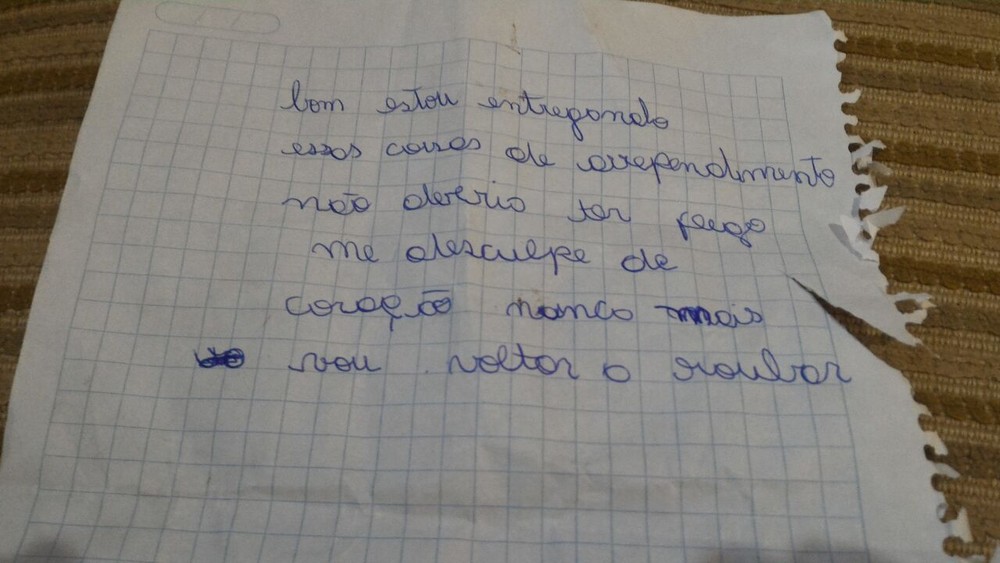 bom estou entregando
essas coisas de arrependimento
não deveria ter pego
me desculpe de
coração nunca mais
vou voltar a roubar